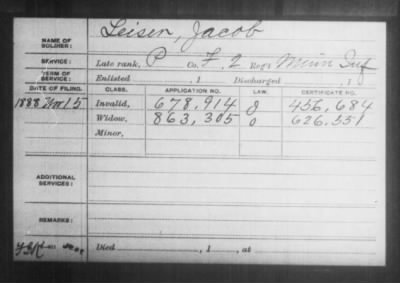 NAME OF SOLDIER: Leisen, Jacob
SERVICE: Late rank, P Co. F, 2 Reg't Minn Inf
TERM OF SERVICE: Enlisted , 1 Discharged , 1
DATE OF FILING. CLASS. APPLICATION NO. LAW. CERTIFICATE NO.
1888 Nov 15 Invalid, 678,914 456,684
Widow, 863,305 626,351
Minor,
ADDITIONAL SERVICES:
REMARKS:
Died , 1 , at